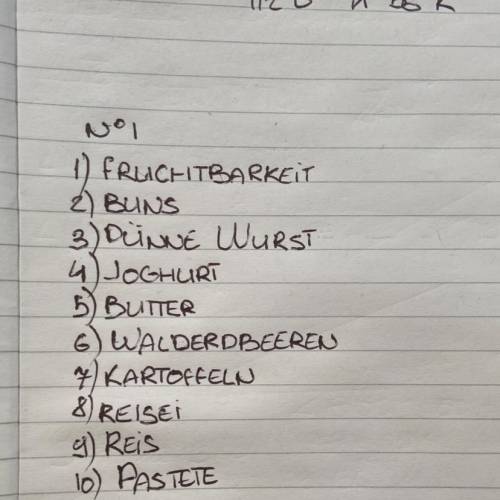 N°1
1) FRUCHTBARKEIT
2) BUNS
3) DÜNNE WURST
4) JOGHURT
5) BUTTER
6) WALDERDBEEREN
7) KARTOFFELN
8) REISEI
9) REIS
10) PASTETE